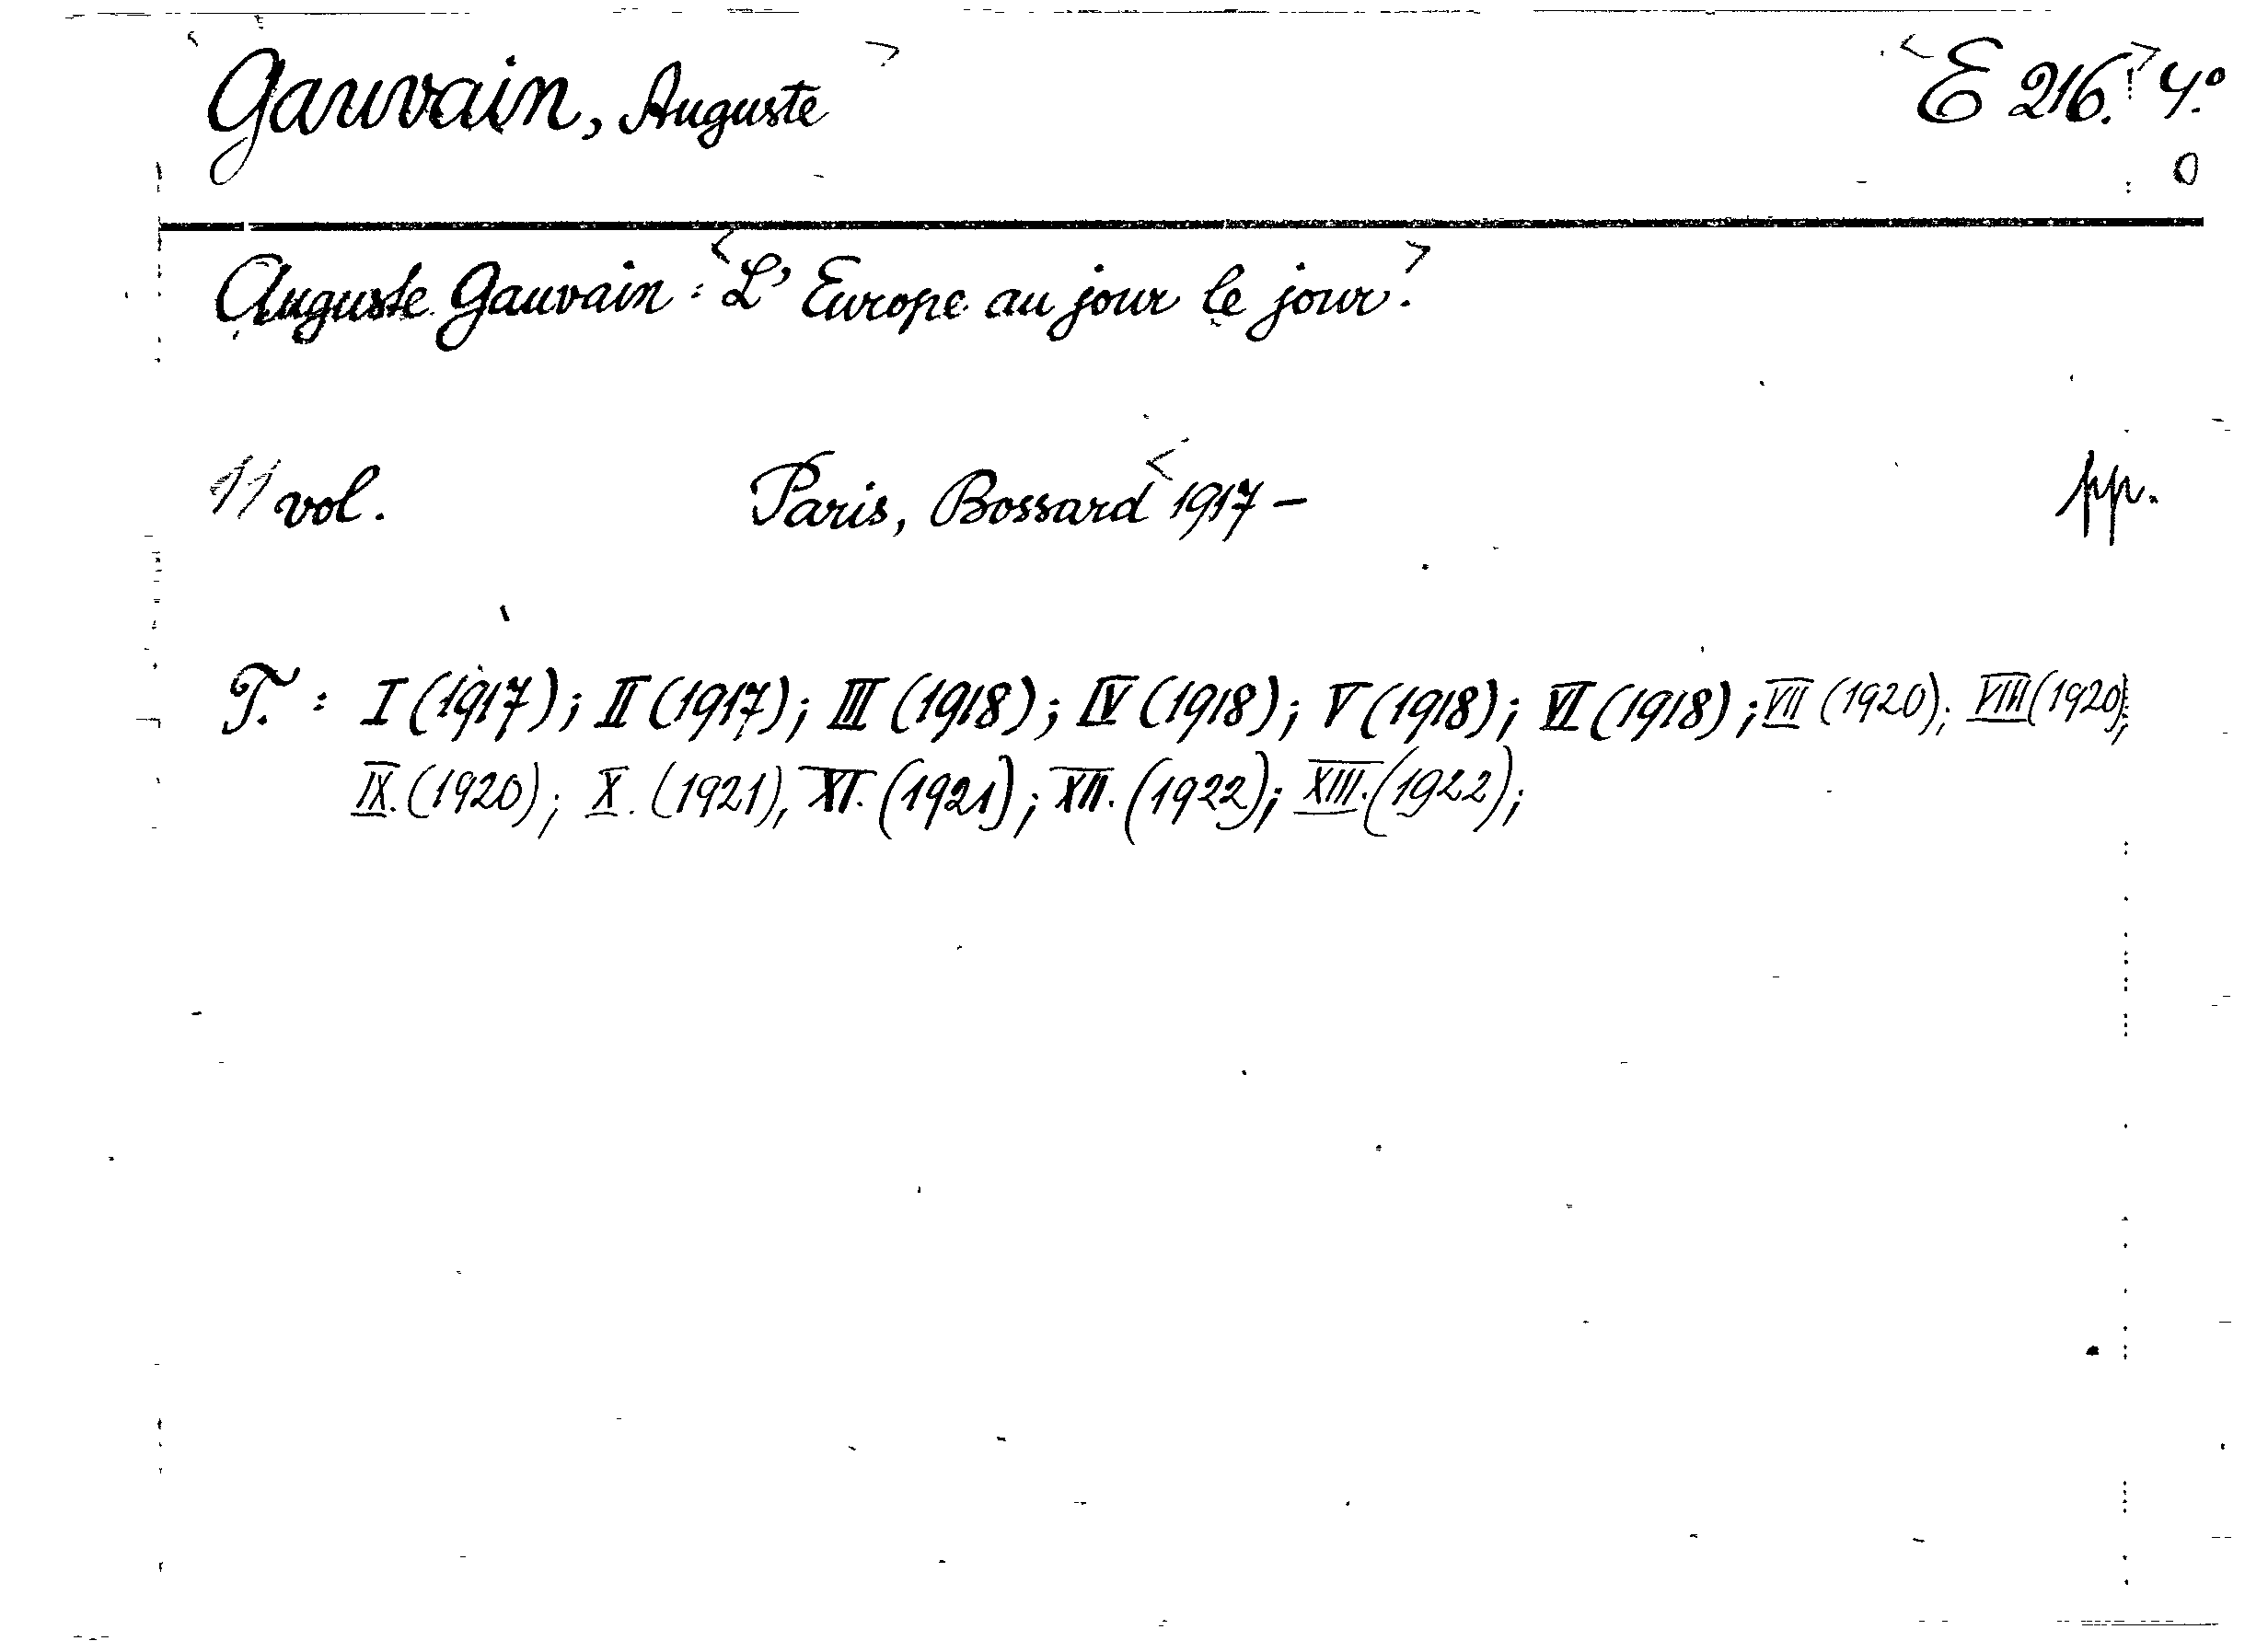 Gauvain, Auguste <E 216.> 4.º
0
Auguste Gauvain: <L'Europe au jour le jour.>
11 vol. Paris, Bossard <1917- pp.
T.: I (1917); II (1917); III (1918); IV (1918); V (1918); VI (1918); VII (1920); VIII (1920);
IX. (1920); X. (1921), XI. (1921); XII. (1922); XIII. (1922);